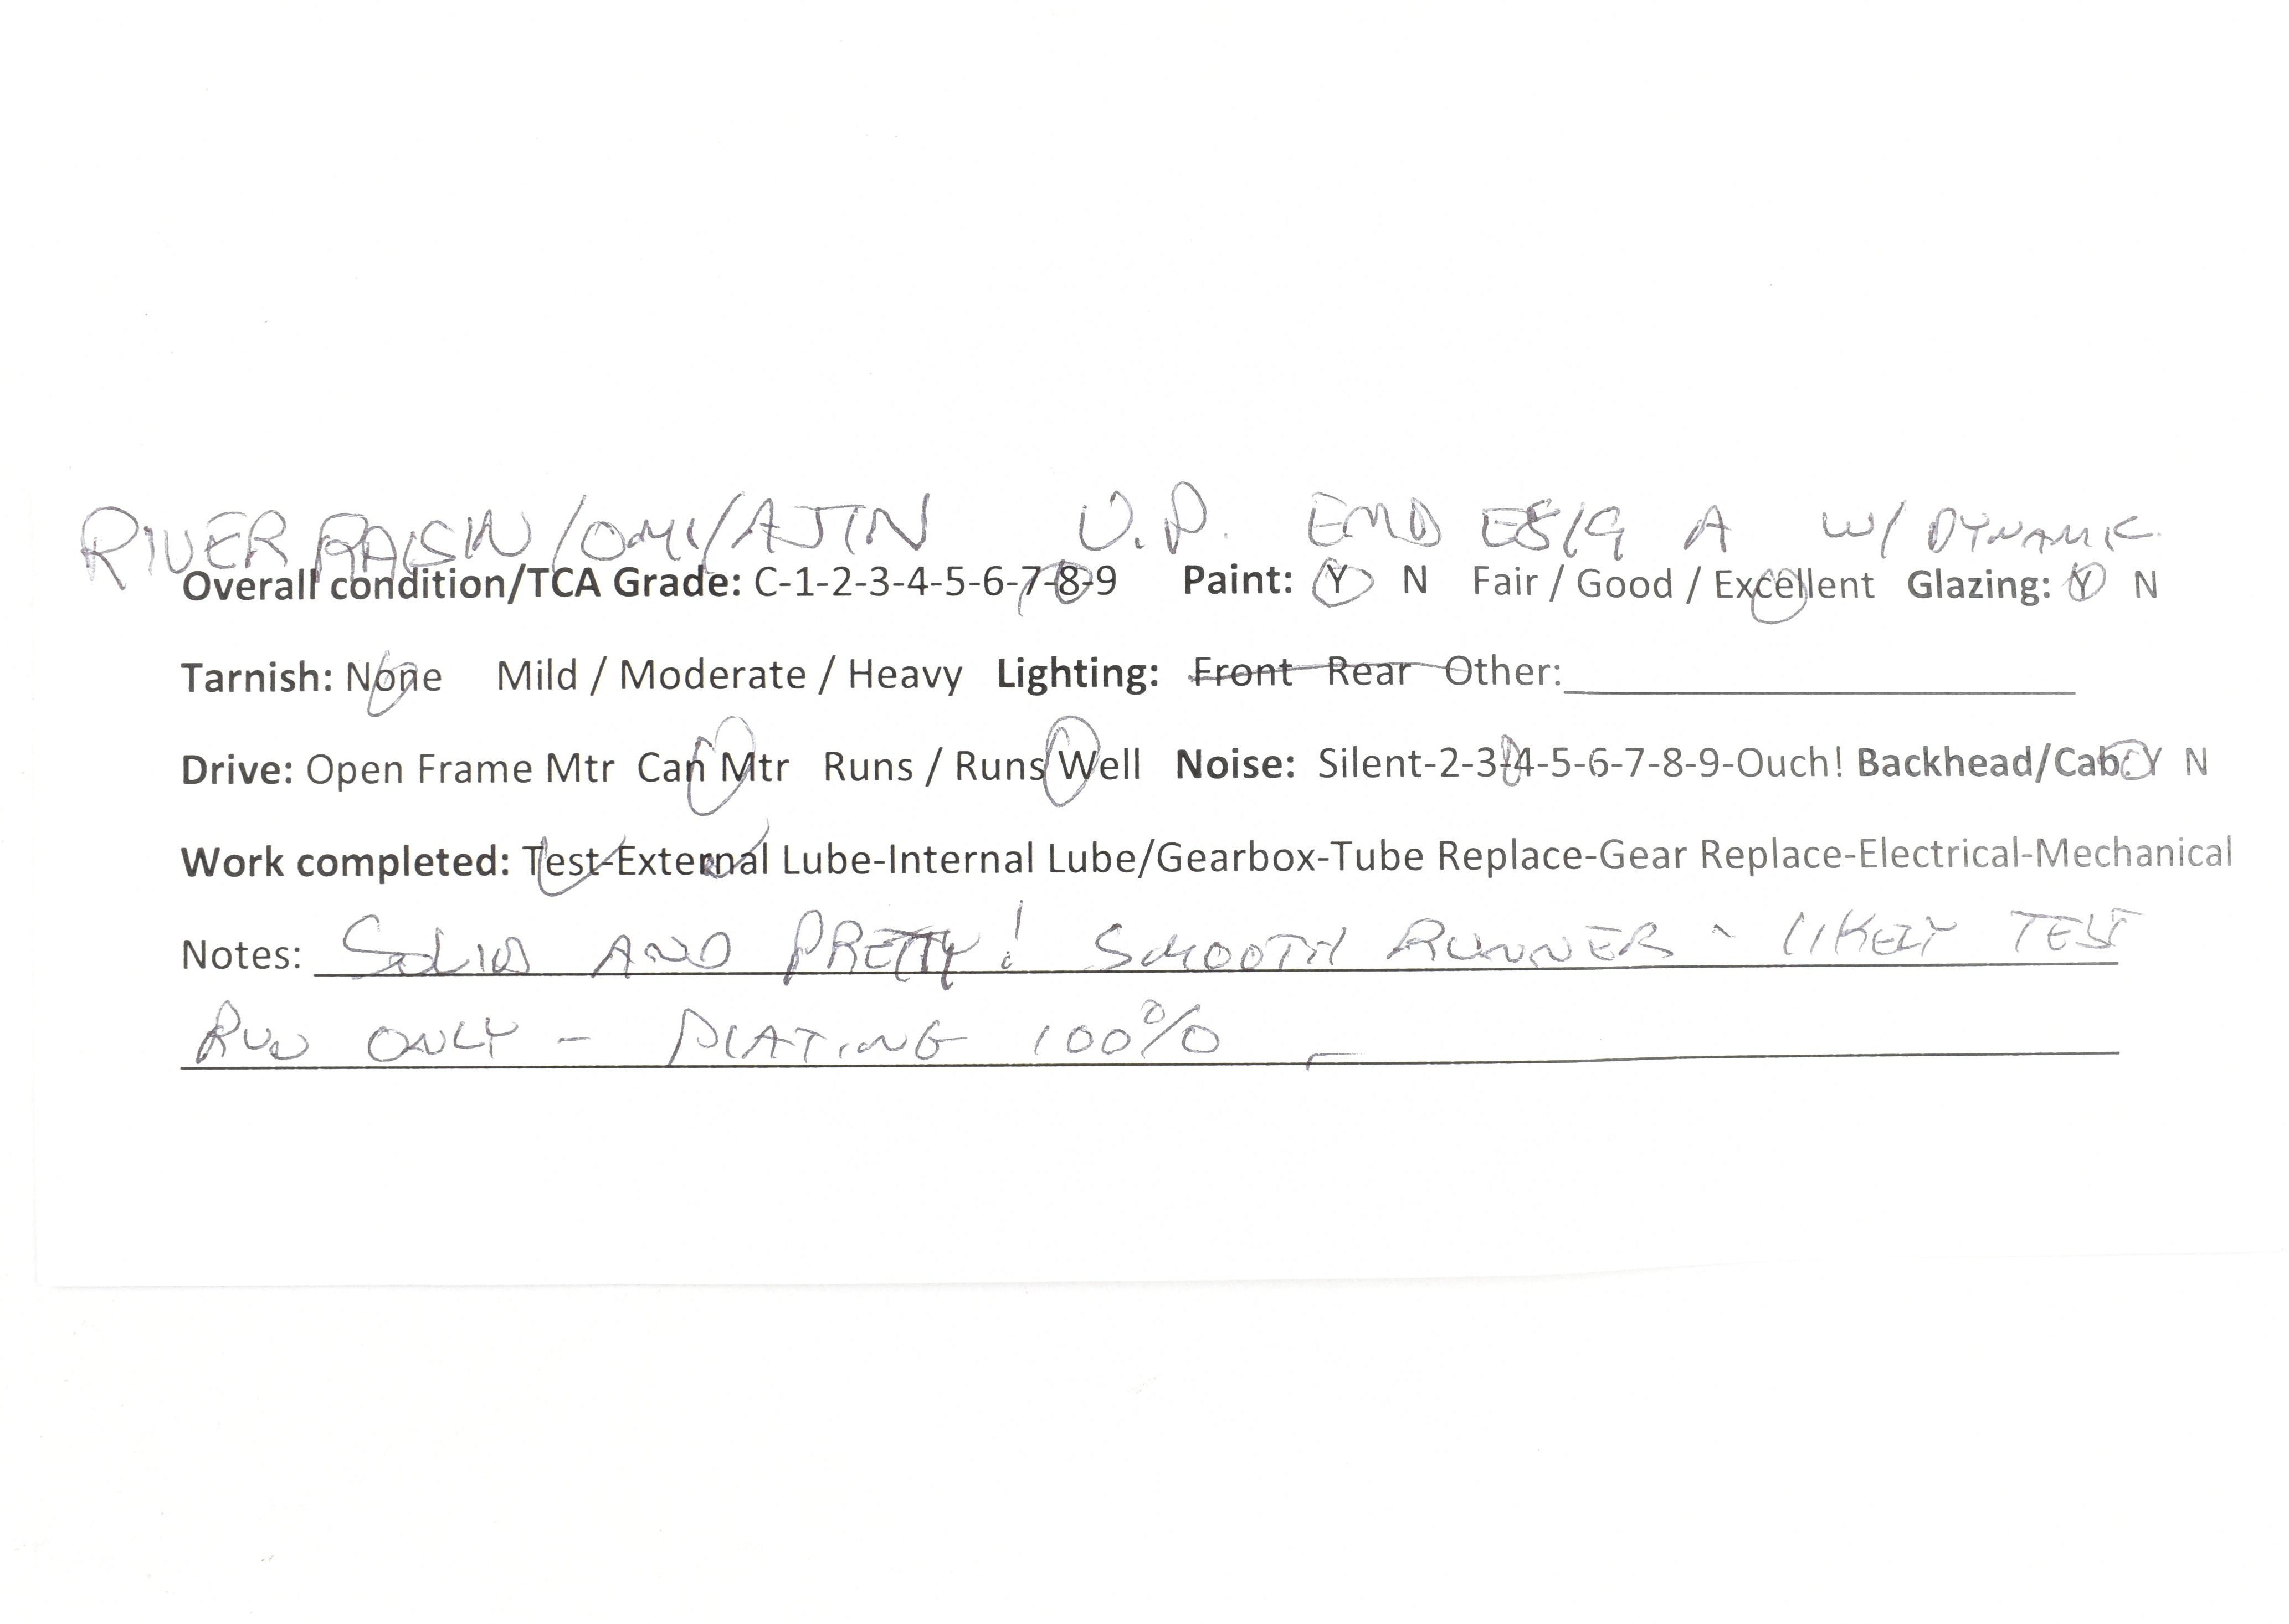 RIVER RAISIN/OMI/AJIN U.P. EMD E8/9 A W/ DYNAMIC.
Overall condition/TCA Grade: C-1-2-3-4-5-6-7-8-9 Paint: Y N Fair / Good / Excellent Glazing: Y N
Tarnish: None Mild / Moderate / Heavy Lighting: Front Rear Other:
Drive: Open Frame Mtr Can Mtr Runs / Runs Well Noise: Silent-2-3-4-5-6-7-8-9-Ouch! Backhead/Cab: Y N
Work completed: Test-External Lube-Internal Lube/Gearbox-Tube Replace-Gear Replace-Electrical-Mechanical
Notes: SOLID AND PRETTY! SMOOTH RUNNER - LIKELY TEST
RUN ONLY - PLATING 100%